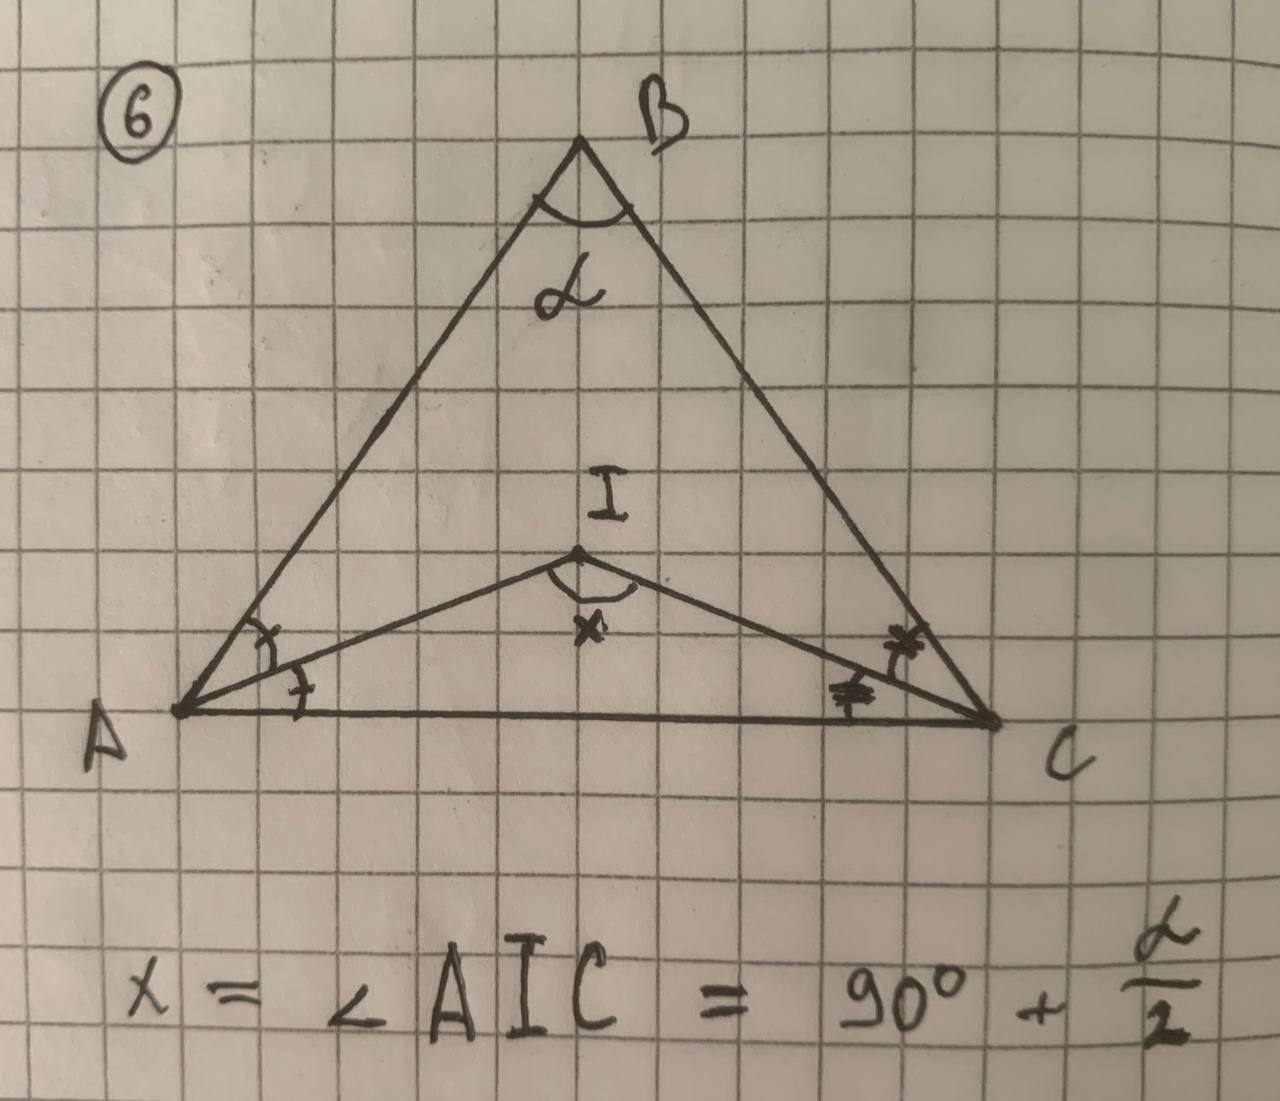 6
B
α
I
x
A
C
x = ∠AIC = 90° + α/2